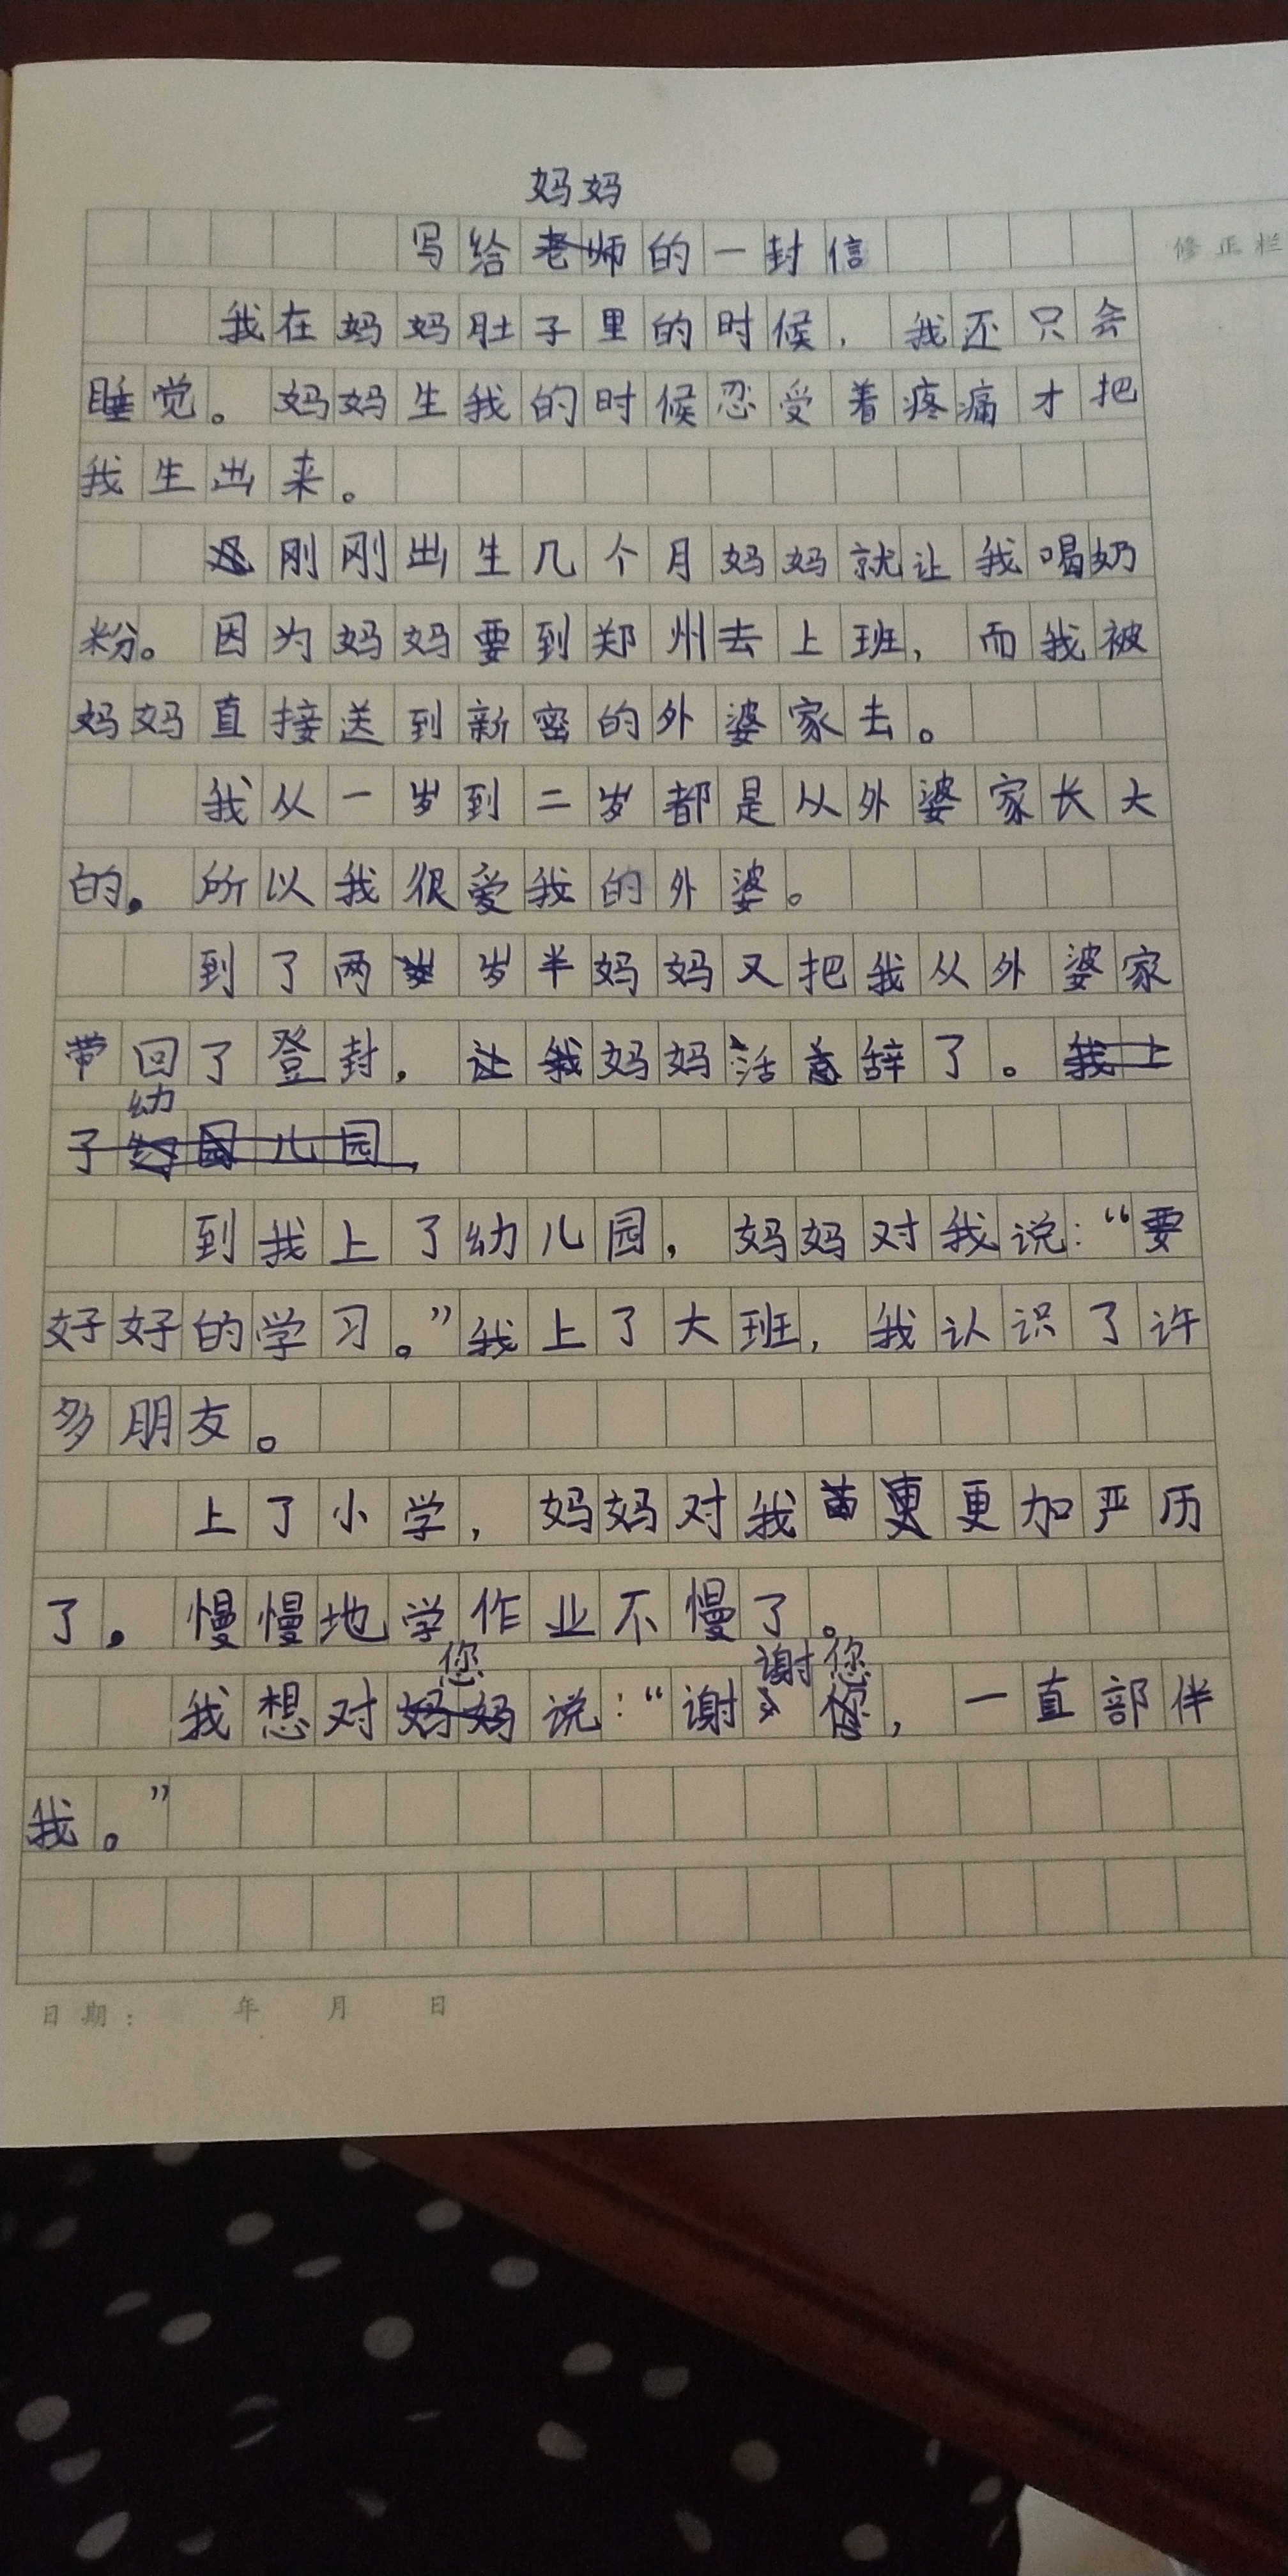 妈妈
写给老师的一封信
修正栏
我在妈妈肚子里的时候，我还只会
睡觉。妈妈生我的时候忍受着疼痛才把
我生出来。
刚刚出生几个月妈妈就让我喝奶
粉。因为妈妈要到郑州去上班，而我被
妈妈直接送到新密的外婆家去。
我从一岁到二岁都是从外婆家长大
的，所以我很爱我的外婆。
到了两岁半妈妈又把我从外婆家
带回了登封，让我妈妈活辞了。我上
幼
了园儿园，
到我上了幼儿园，妈妈对我说：“要
好好的学习。”我上了大班，我认识了许
多朋友。
上了小学，妈妈对我更更加严历
了，慢慢地学作业不慢了。
您 谢您
我想对妈妈说：“谢您，一直部伴
我。”
日期： 年 月 日